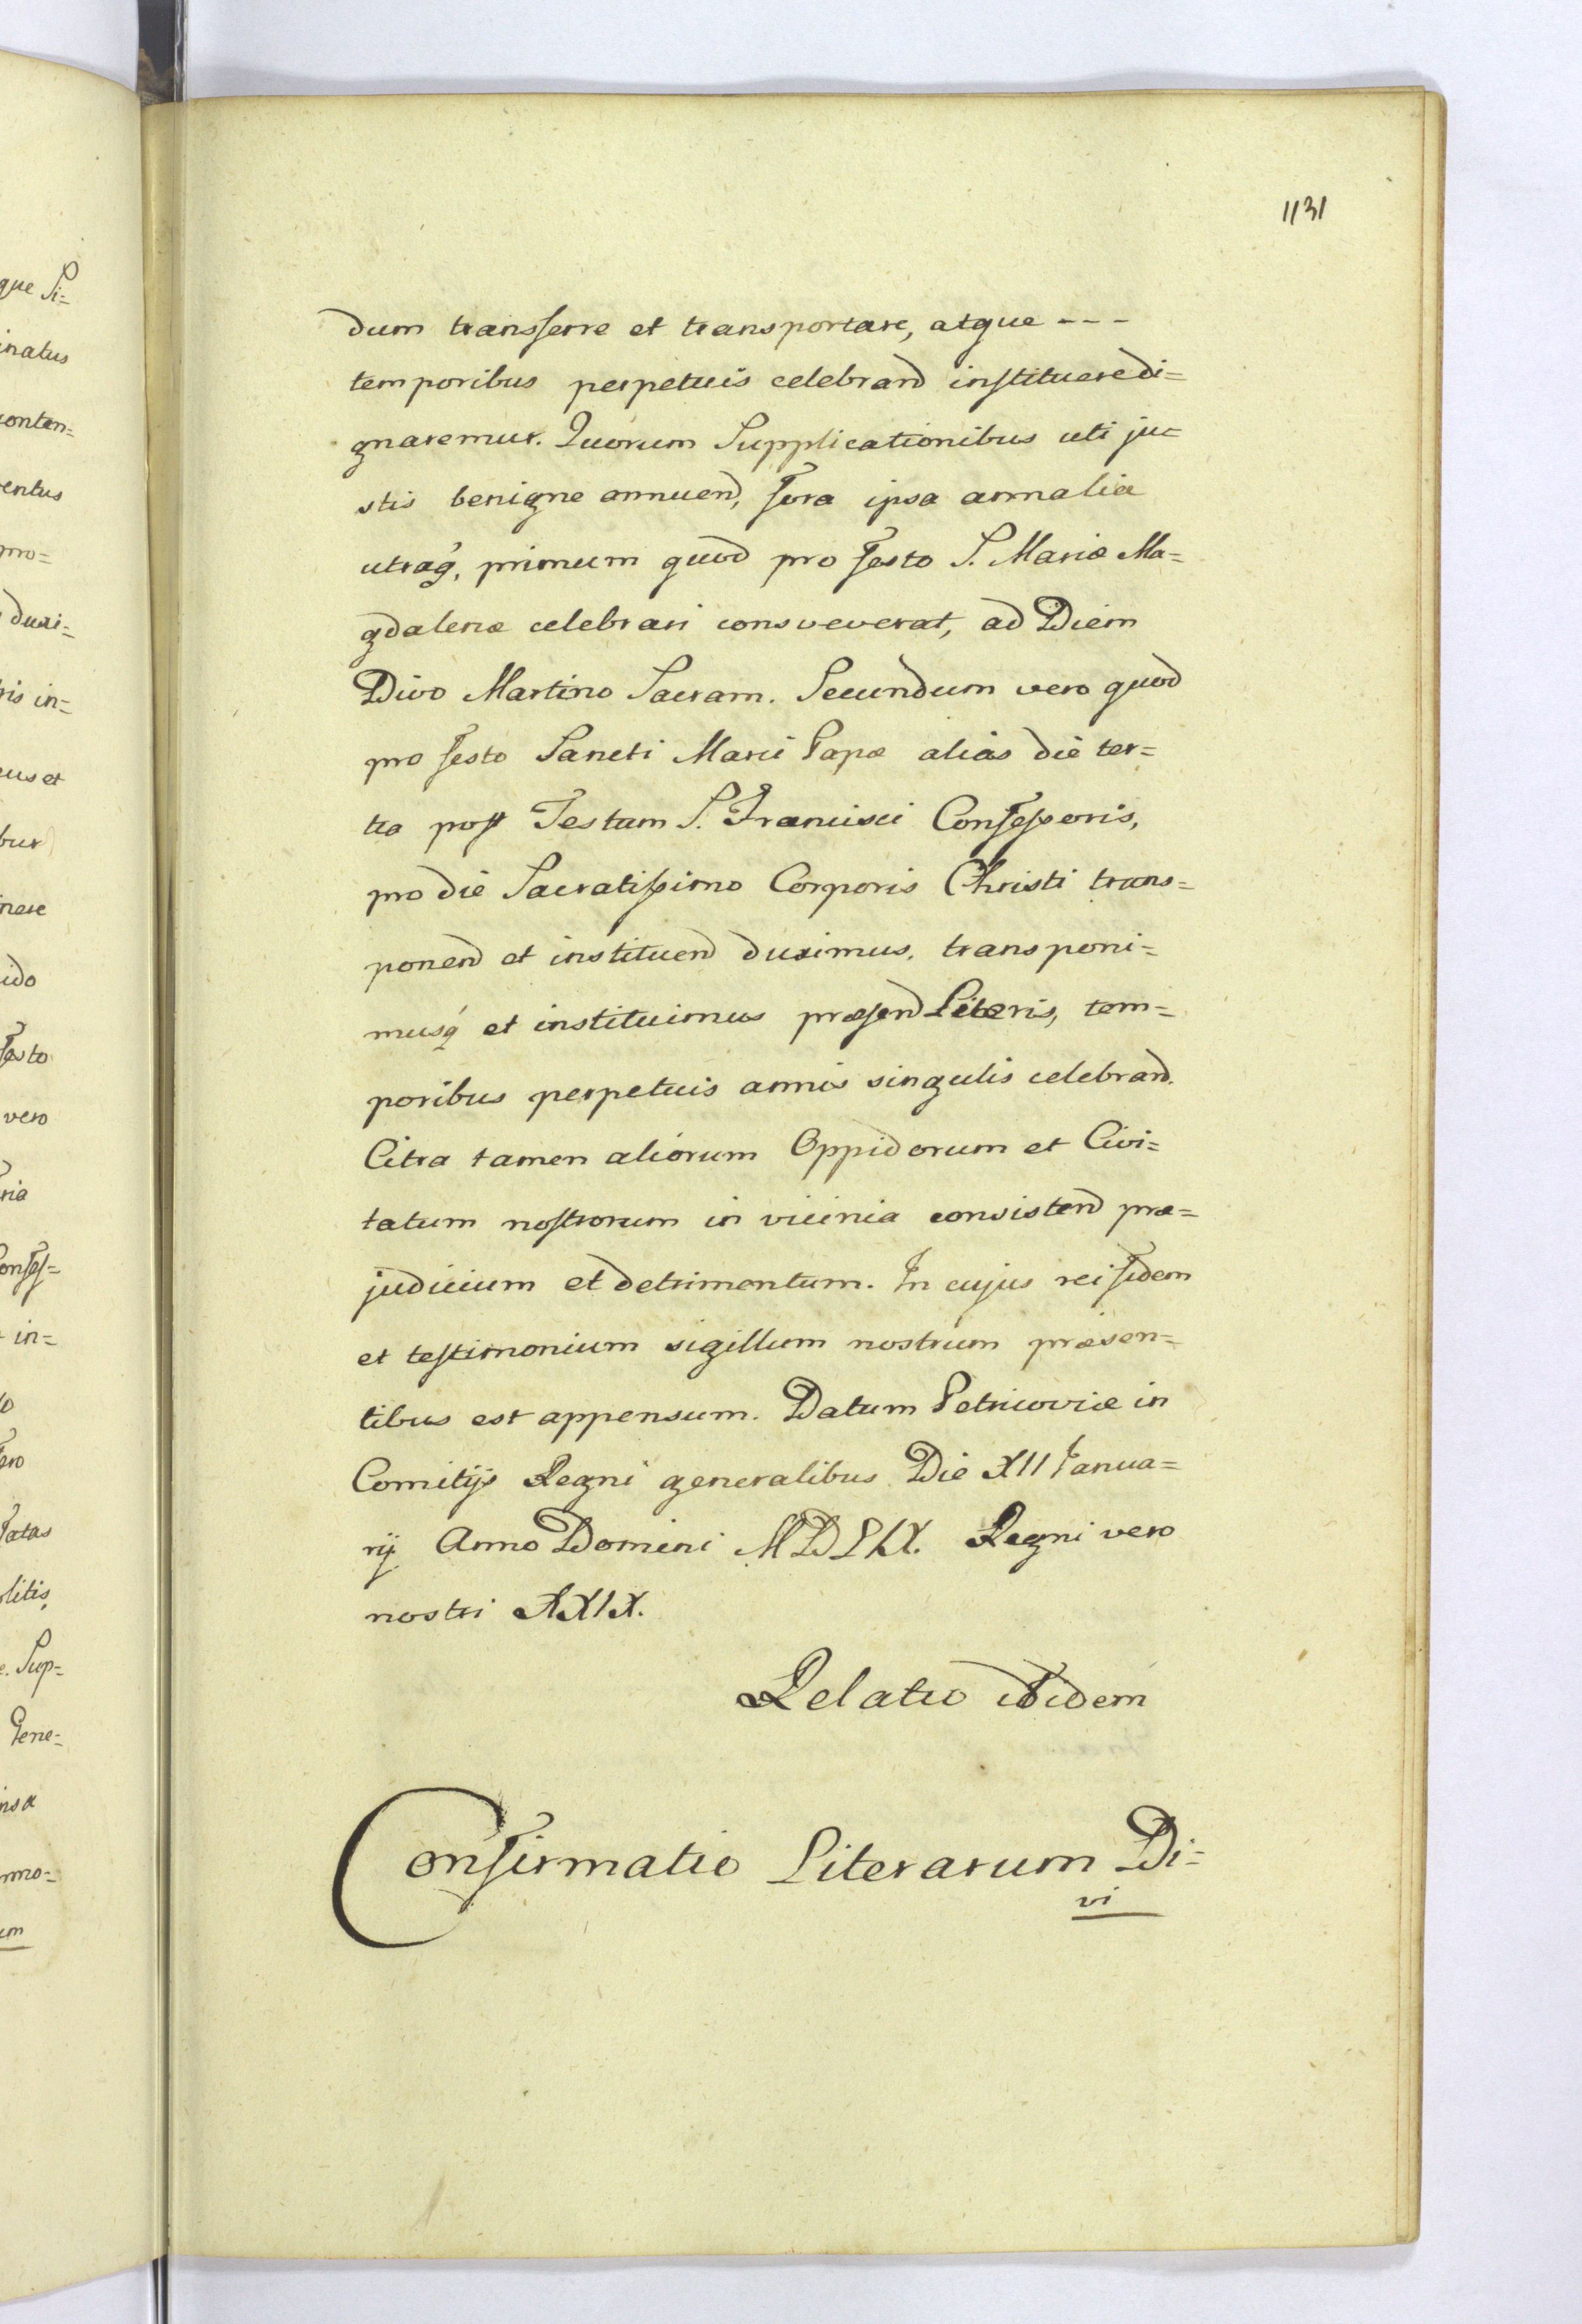 1131
dum transferre et transportare, atque ---
temporibus perpetuis celebrand instituere di=
gnaremur. Quorum Supplicationibus uti ju=
stis benigne annuend, fora ipsa annalia
utraq, primum quod pro festo S. Mariæ Ma=
gdalenæ celebrari consveverat, ad Diem
Divo Martino Sacram. Secundum vero quod
pro festo Sancti Marci Papæ alias die ter=
tia post Festum S. Francisci Confessoris,
pro die Sacratissimo Corporis Christi trans=
ponend et instituend duximus, transponi=
musq et instituimus præsend Literis, tem=
poribus perpetuis annis singulis celebrand.
Citra tamen aliorum Oppidorum et Civi=
tatum nostrorum in vicinia consistend præ=
judicium et detrimentum. In cujus rei fidem
et testimonium sigillum nostrum præsen=
tibus est appensum. Datum Petricoviæ in
Comitijs Regni generalibus Die XII Janua=
rij Anno Domini MDLIX. Regni vero
nostri XXIX.
Relatio ibidem
Confirmatio Literarum Di=
vi
que Si=
inatus
conten=
entus
pro=
duxi=
ris in=
eus et
bus
nere
ido
festo
vero
ria
onfes=
in=
ero
litis,
e. Sup=
Gene=
nsa
mmo=
um